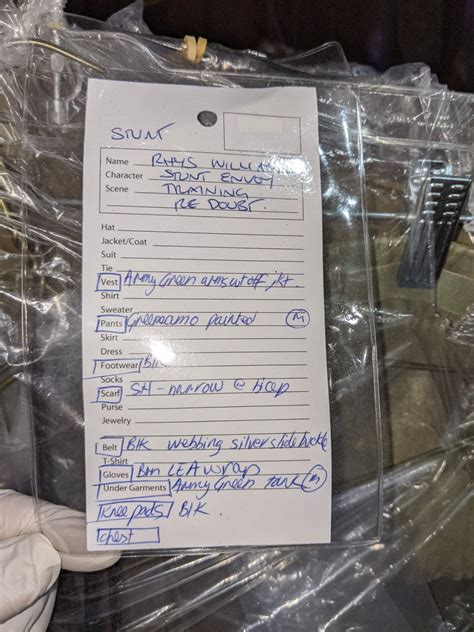 STUNT
Name RHYS WILLI
Character STUNT ENVOY
Scene TRAINING
RE DOUBT.
Hat
Jacket/Coat
Suit
Tie
Vest Army Green arms cut off jkt.
Shirt
Sweater
Pants Greencamo painted M
Skirt
Dress
Footwear Blk
Socks
Scarf SH - narrow @ bicep
Purse
Jewelry
Belt Blk webbing silver slide buckle
T-Shirt
Gloves Brn LEA wrap
Under Garments Army Green tank M
Knee pads/ Blk.
chest